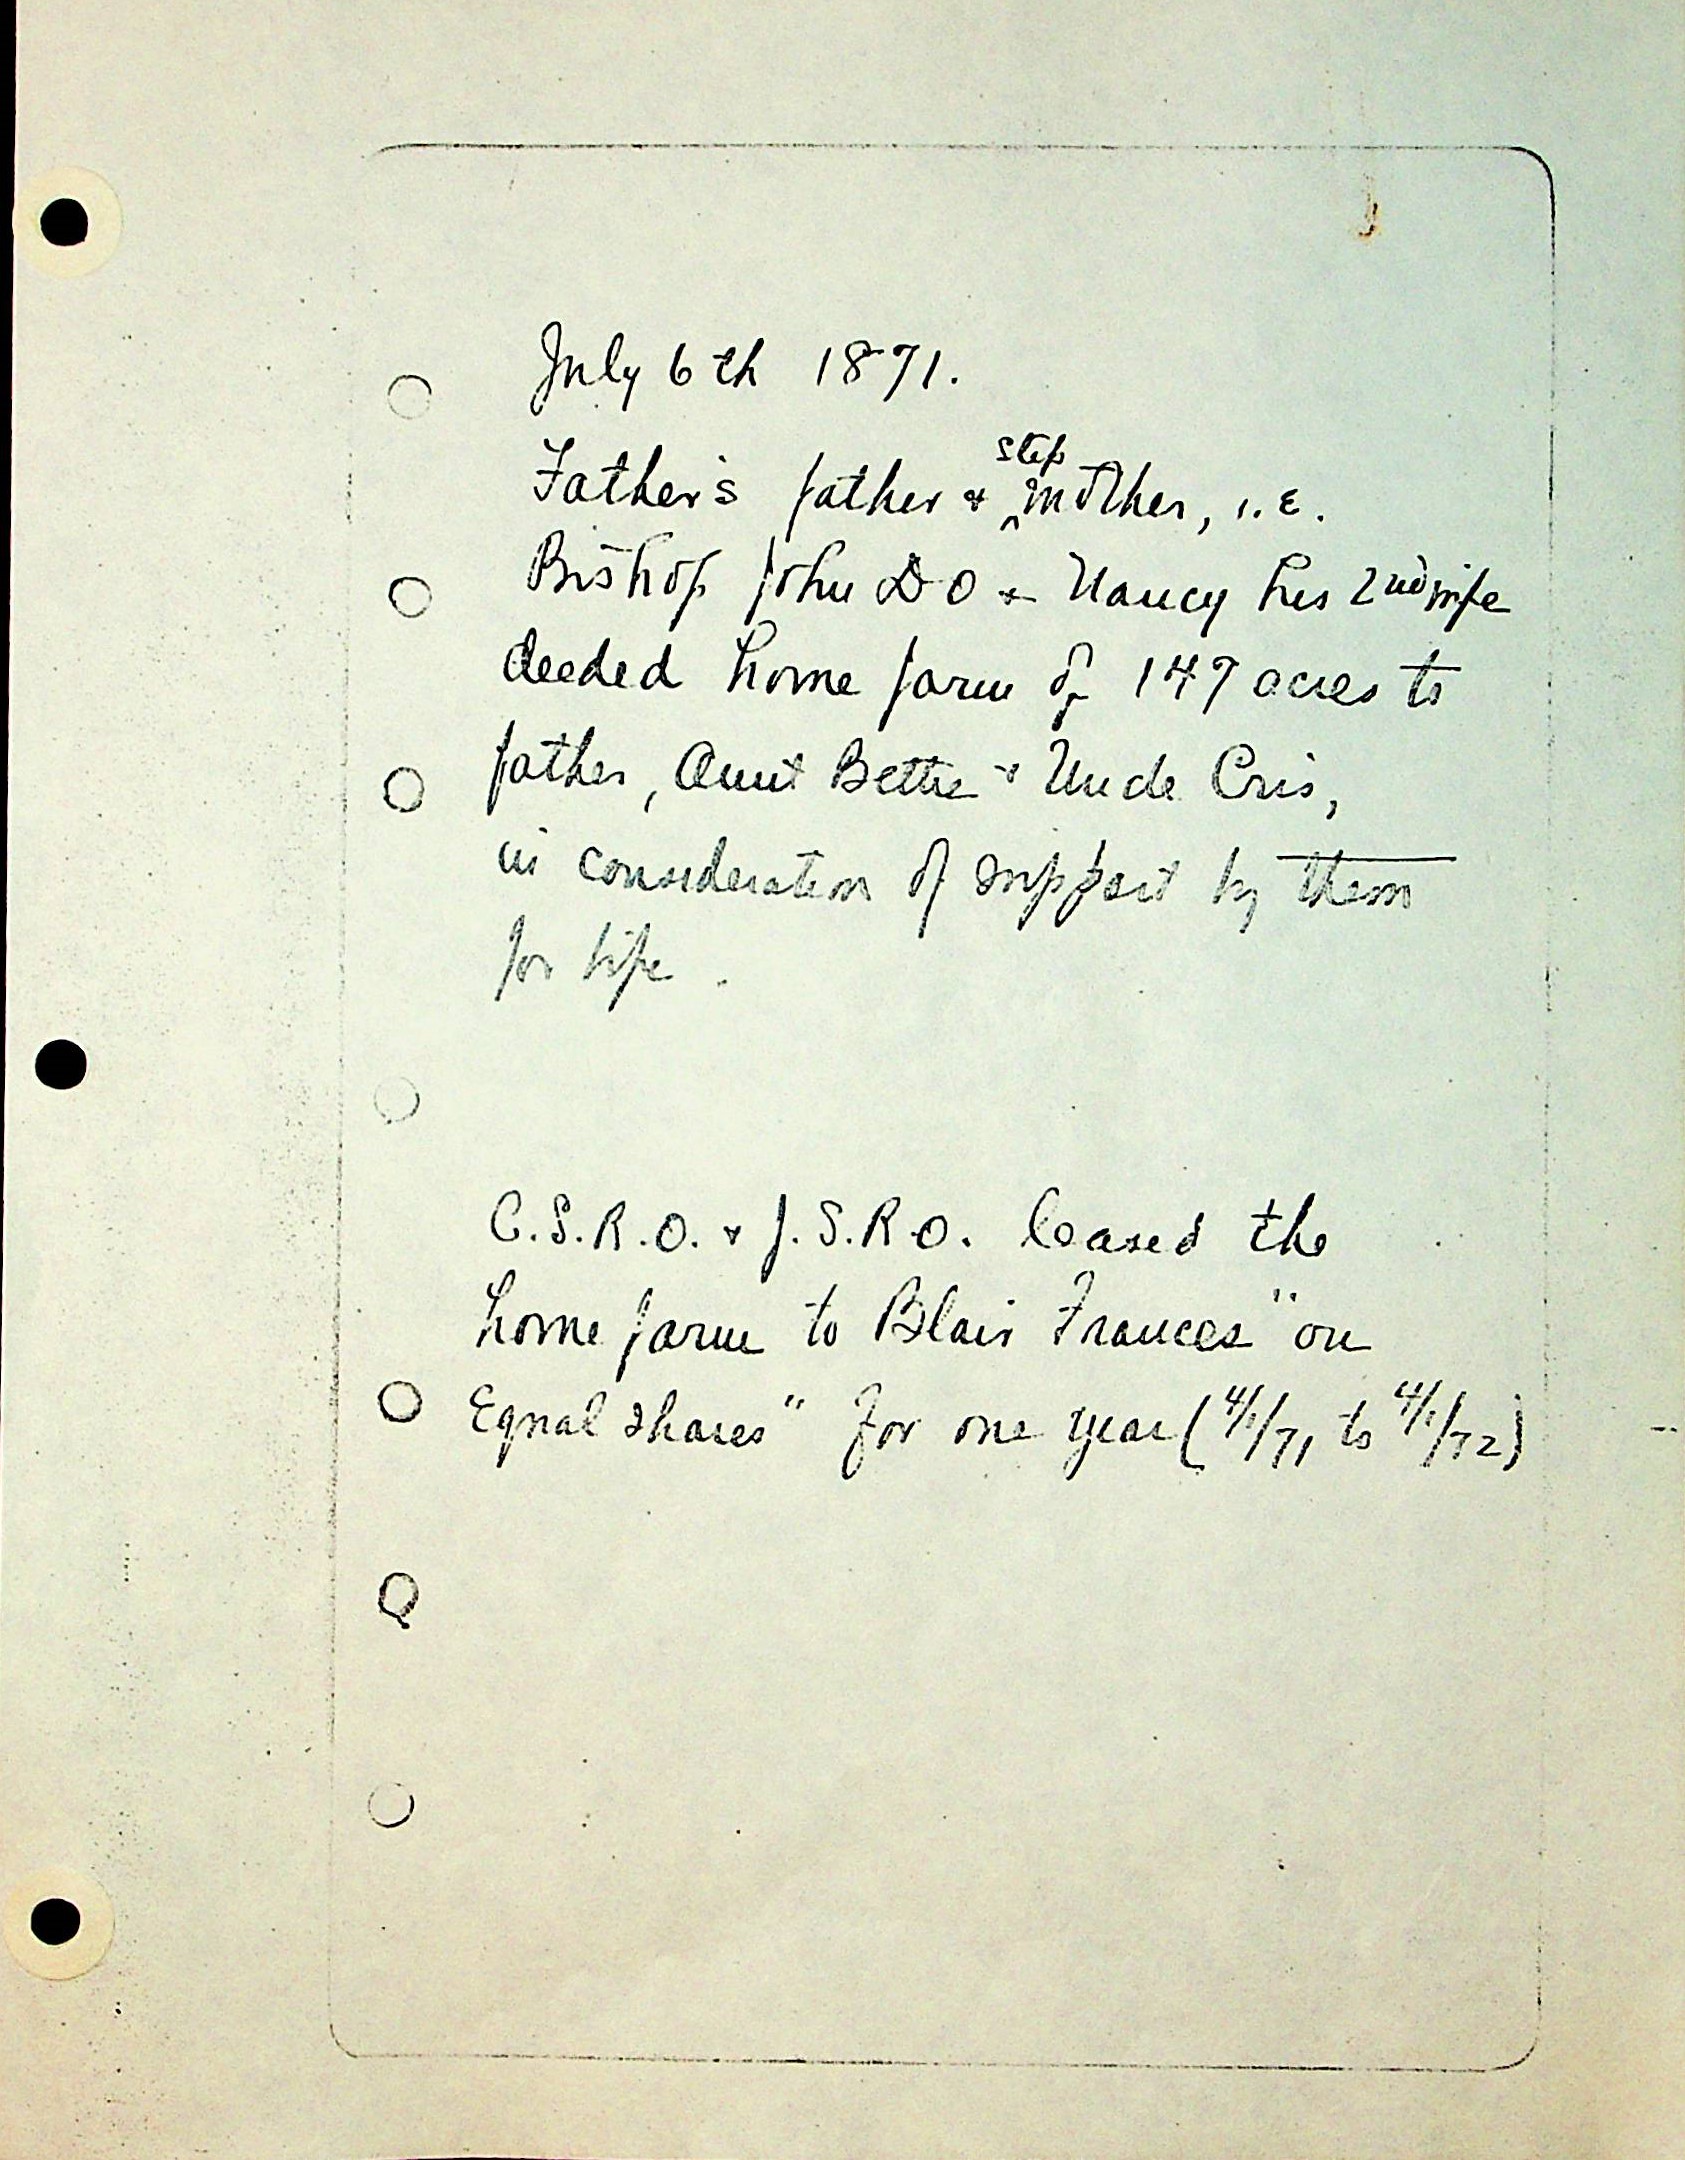 July 6th 1871.
Father's father & ^step mother, i.e.
Bishop John D O & Nancy his 2nd wife
deeded home farm of 147 acres to
father, Aunt Bettie & Uncle Cris,
in consideration of support by them
for life.
C.S.R.O. & J.S.R.O. leased the
home farm to Blair Frances "on
Equal shares" for one year (4/1/71 to 4/1/72)